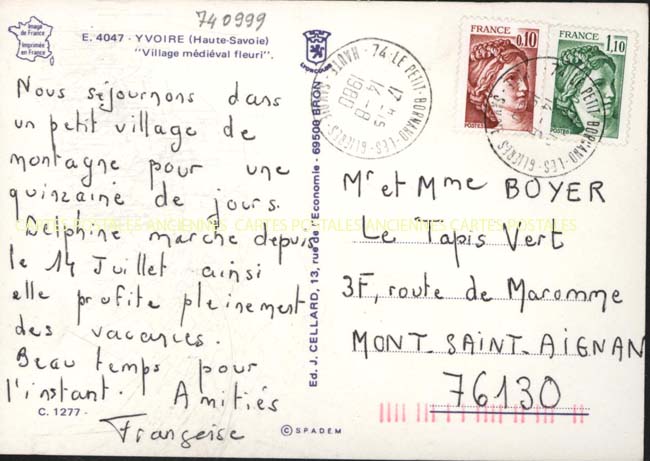 740999
Image
de France
Imprimée
en France
E. 4047 - YVOIRE (Haute-Savoie)
"Village médiéval fleuri".
LYONCOLOR
Nous séjournons dans
un petit village de
montagne pour une
quinzaine de jours.
Delphine marche depuis
le 14 Juillet ainsi
elle profite pleinement
des vacances.
Beau temps pour
l'instant. Amitiés
Françoise
C. 1277 -
Ed. J. CELLARD, 13, rue de l'Economie - 69500 BRON
© SPADEM
74-LE PETIT-BORNAND-LES-GLIERES
HAUTE-SAVOIE
17 H 15
14-8
1980
FRANCE
0,10
POSTES
FRANCE
1,10
POSTES
74-LE PETIT-BORNAND-LES-GLIERES
Mr et Mme BOYER
Le Tapis Vert
3F, route de Maromme
MONT-SAINT-AIGNAN
76130
CARTES POSTALES ANCIENNES CARTES POSTALES ANCIENNES CARTES POSTALES